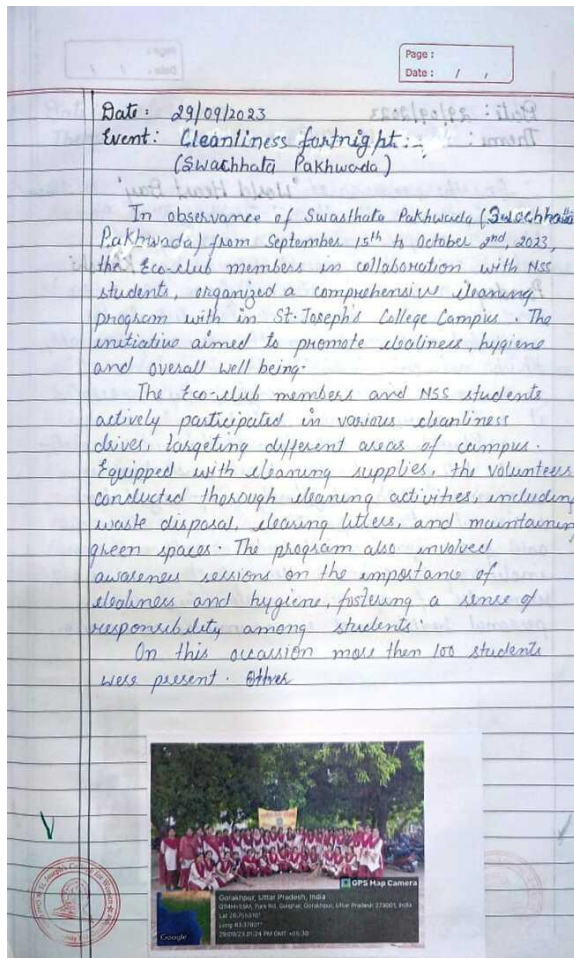 Page :
Date : / /
Date: 29/09/2023
Event: Cleanliness fortnight:-
(Swachhata Pakhwada)
In observance of Swasthata Pakhwada (Swachhata
Pakhwada) from September 15th to October 2nd, 2023,
the Eco-club members in collaboration with NSS
students, organized a comprehensive cleaning
program with in St. Joseph's College Campus. The
initiative aimed to promote clealiness, hygiene
and overall well being.
The Eco-club members and NSS students
actively participated in various cleanliness
drives, targeting different areas of campus.
Equipped with cleaning supplies, the volunteers
conducted thorough cleaning activities, including
waste disposal, clearing litters, and maintaining
green spaces. The program also involved
awareness sessions on the importance of
clealiness and hygiene, fostering a sense of
responsibility among students.
On this occassion more then 100 students
were present.
GPS Map Camera
Gorakhpur, Uttar Pradesh, India
Park Rd, Gorakhpur, Uttar Pradesh 273001, India
Lat
Long
29/09/23 01:24 PM GMT +05:30
Google